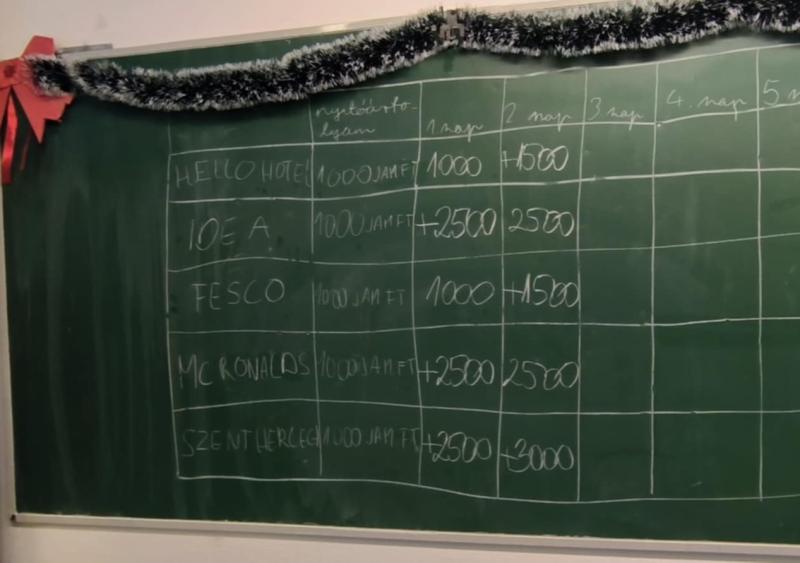 nyitóárfo-
lyam 1 nap 2 nap 3 nap 4. nap 5 n
HELLO HOTEL 1000 JAMFT 1000 +1500
IDEA 1000 JAMFT +2500 2500
FESCO 1000 JAM FT 1000 +1500
MC RONALDS 1000 JAMFT +2500 2500
SZENTHERCEG 1000 JAM FT +2500 +3000